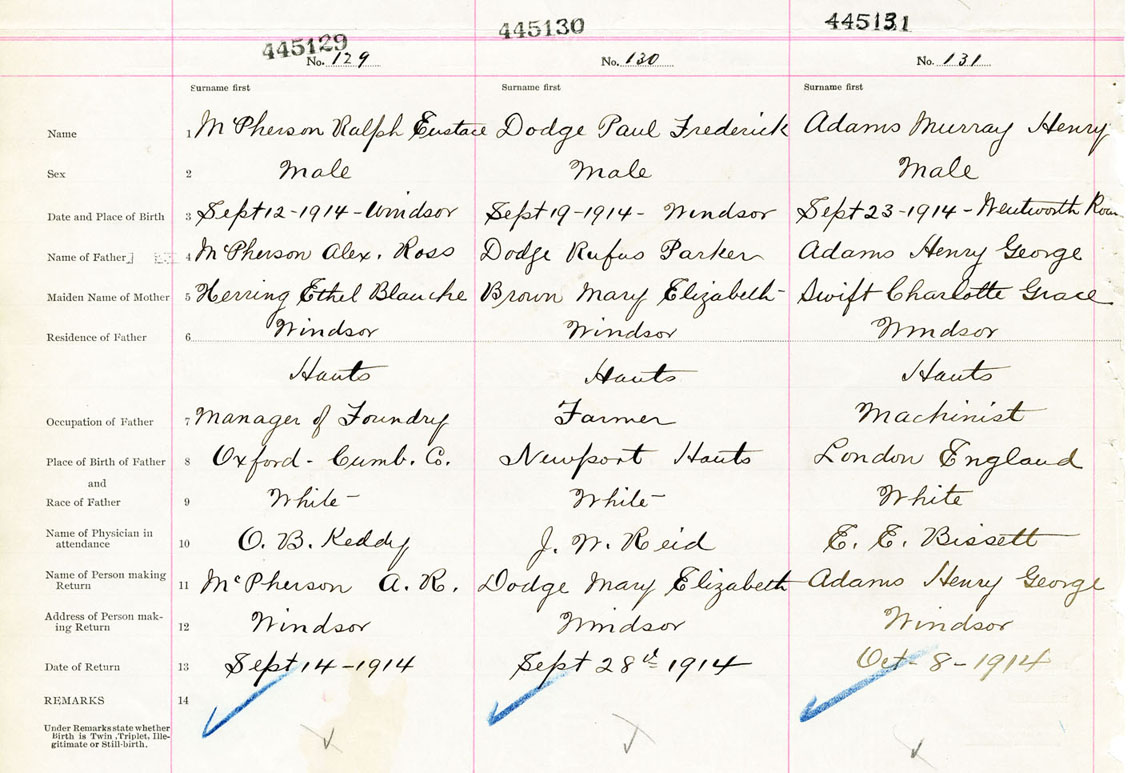 445129 445130 445131
No. 129 No. 130 No. 131
Surname first Surname first Surname first
Name 1 McPherson Ralph Eustace Dodge Paul Frederick Adams Murray Henry
Sex 2 Male Male Male
Date and Place of Birth 3 Sept 12-1914-Windsor Sept 19-1914- Windsor Sept 23-1914-Wentworth Road
Name of Father 4 McPherson Alex. Ross Dodge Rufus Parker Adams Henry George
Maiden Name of Mother 5 Herring Ethel Blanche Brown Mary Elizabeth Swift Charlotte Grace
Residence of Father 6 Windsor Windsor Windsor
Hants Hants Hants
Occupation of Father 7 Manager of Foundry Farmer Machinist
Place of Birth of Father 8 Oxford- Cumb. Co. Newport Hants London England
and
Race of Father 9 White White White
Name of Physician in
attendance 10 O. B. Keddy J. W. Reid E. E. Bissett
Name of Person making
Return 11 McPherson A. R. Dodge Mary Elizabeth Adams Henry George
Address of Person mak-
ing Return 12 Windsor Windsor Windsor
Date of Return 13 Sept 14-1914 Sept 28th 1914 Oct-8-1914
REMARKS 14
Under Remarks state whether
Birth is Twin, Triplet, Ille-
gitimate or Still-birth.